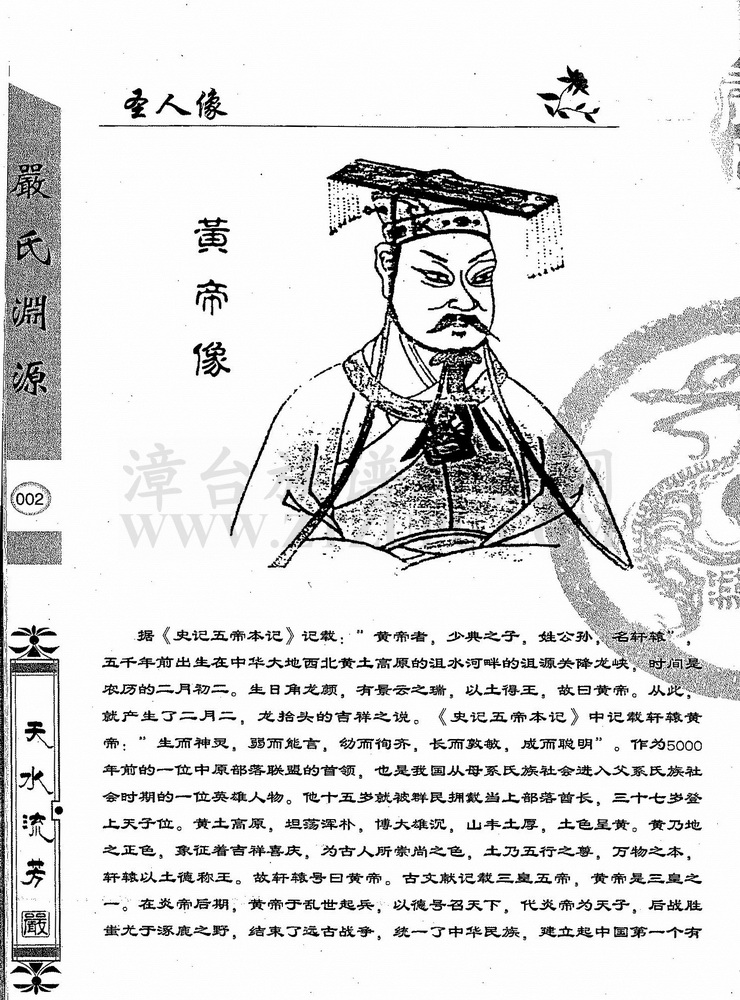 圣人像
嚴氏淵源
黃帝像
002
据《史记五帝本记》记载："黄帝者，少典之子，姓公孙，名轩辕"，
五千年前出生在中华大地西北黄土高原的沮水河畔的沮源关降龙峡，时间是
农历的二月初二。生日角龙颜，有景云之瑞，以土得王，故曰黄帝。从此，
就产生了二月二，龙抬头的吉祥之说。《史记五帝本记》中记载轩辕黄
帝："生而神灵，弱而能言，幼而徇齐，长而敦敏，成而聪明"。作为5000
年前的一位中原部落联盟的首领，也是我国从母系氏族社会进入父系氏族社
会时期的一位英雄人物。他十五岁就被群民拥戴当上部落酋长，三十七岁登
上天子位。黄土高原，坦荡浑朴，博大雄沉，山丰土厚，土色呈黄。黄乃地
之正色，象征着吉祥喜庆，为古人所崇尚之色，土乃五行之尊，万物之本，
轩辕以土德称王。故轩辕号曰黄帝。古文献记载三皇五帝，黄帝是三皇之
一。在炎帝后期，黄帝于乱世起兵，以德号召天下，代炎帝为天子，后战胜
蚩尤于涿鹿之野，结束了远古战争，统一了中华民族，建立起中国第一个有
天水流芳
嚴
漳台
www.